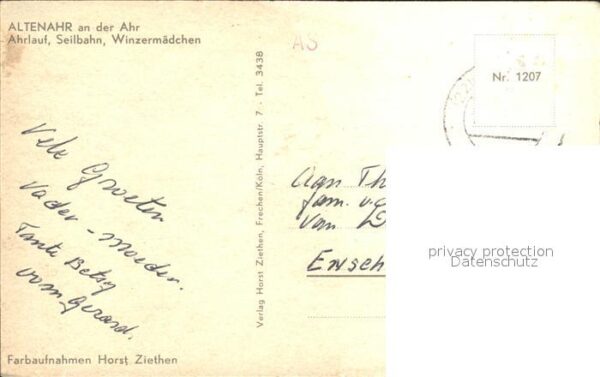 ALTENAHR an der Ahr
Ahrlauf, Seilbahn, Winzermädchen
AS
Nr. 1207
Vele Groeten
Vader - Moeder.
Tante Betsy
Aan Th
fam. v.d.
van D
Ensch
privacy protection
Datenschutz
Verlag Horst Ziethen, Frechen/Köln, Hauptstr. 7 · Tel. 3438
Farbaufnahmen Horst Ziethen